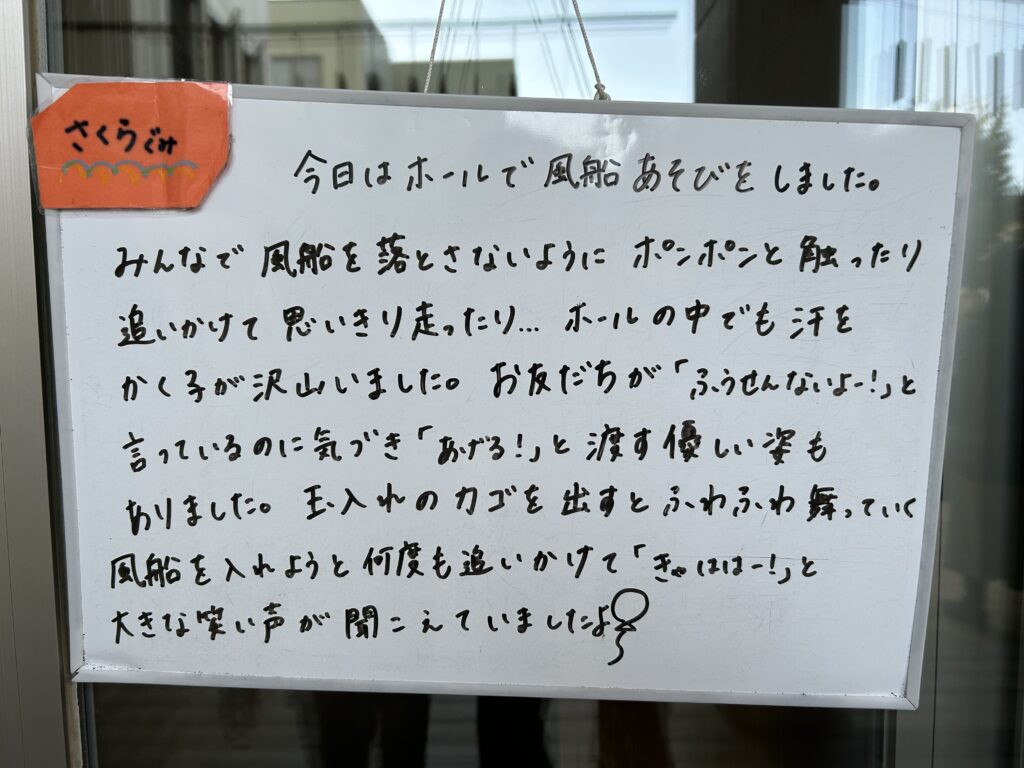 さくらぐみ
今日はホールで風船あそびをしました。
みんなで風船を落とさないようにポンポンと触ったり
追いかけて思いきり走ったり…ホールの中でも汗を
かく子が沢山いました。お友だちが「ふうせんないよー!」と
言っているのに気づき「あげる!」と渡す優しい姿も
ありました。玉入れのカゴを出すとふわふわ舞っていく
風船を入れようと何度も追いかけて「きゃははー!」と
大きな笑い声が聞こえていましたよ